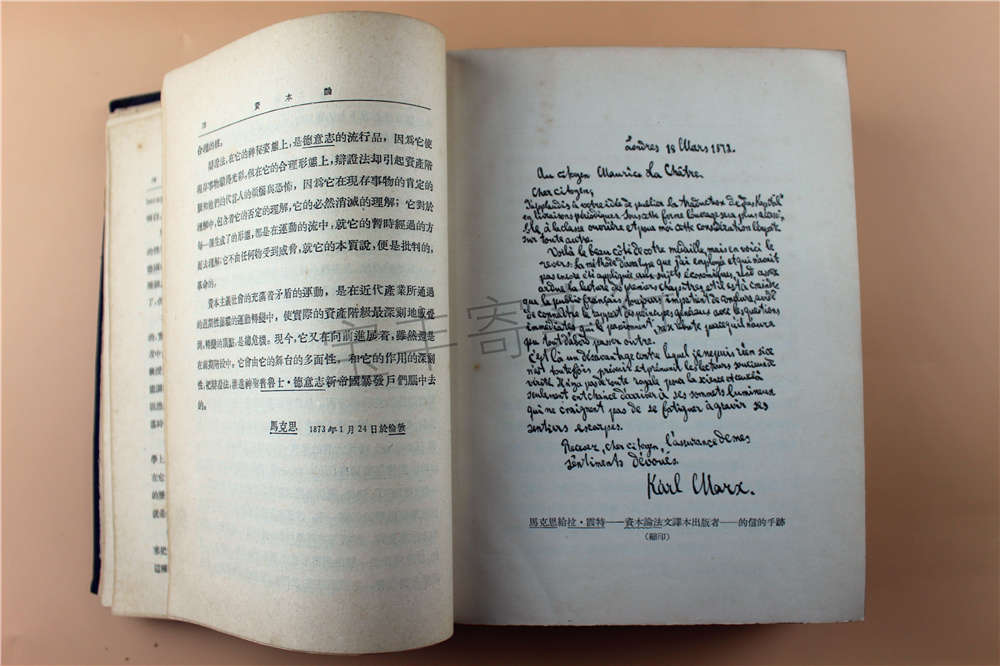 資本論
合理的核。
辯證法,在它的神秘姿態上,是德意志的流行品,因為它使
現存事物顯得光彩。但在它的合理形態上,辯證法却引起資產階
級和他們的代言人的煩惱與恐怖,因為它在現存事物的肯定的
理解中,包含着它的否定的理解,它的必然消滅的理解;它對於
每一個生成了的形態,都是在運動的流中,就它的暫時經過的方
面去理解;它不由任何物受到威脅,就它的本質說,便是批判的,
革命的。
資本主義社會的充滿着矛盾的運動,是在近代產業所通過
的週期性循環的運動轉變中,使實際的資產階級最深刻地感覺
到,轉變的頂點,是總危機。現今,它又在向前進展着,雖然還是
在前期階段中。它會由它的舞台的多面性,和它的作用的深刻
性,把辯證法,推進神聖普魯士・德意志新帝國暴發戶們腦中去
的。
馬克思 1873年1月24日於倫敦
Londres 18 Mars 1872.
Au citoyen Maurice La Châtre.
Cher citoyen,
J'applaudis à votre idée de publier la traduction de "Das Kapital"
en livraisons périodiques. Sous cette forme l'ouvrage sera plus accessi-
ble à la classe ouvrière et pour moi cette considération l'emporte
sur toute autre.
Voilà le beau côté de votre médaille, mais en voici le
revers: La méthode d'analyse que j'ai employée et qui n'avait
pas encore été appliquée aux sujets économiques, rend assez
ardue la lecture des premiers chapitres, et il est à craindre
que le public français, toujours impatient de conclure, avide
de connaître le rapport des principes généraux avec les questions
immédiates qui le passionnent, ne se rebute parce qu'il n'aura
pu tout d'abord passer outre.
C'est là un désavantage contre lequel je ne puis rien si ce
n'est toutefois prévenir et prémunir les lecteurs soucieux de
vérité. Il n'y a pas de route royale pour la science et ceux-là
seulement ont chance d'arriver à ses sommets lumineux
qui ne craignent pas de se fatiguer à gravir ses
sentiers escarpés.
Recevez, cher citoyen, l'assurance de mes
sentiments dévoués.
Karl Marx.
馬克思給拉・囂特——資本論法文譯本出版者——的信的手跡
(縮印)